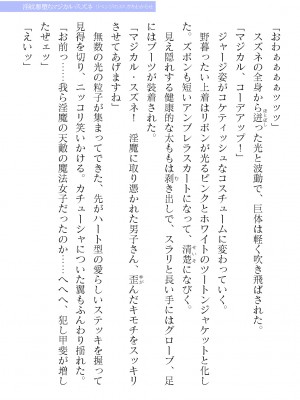 「おわぁぁぁぁッッ」
スズネの全身から迸った光と波動で、巨体は軽く吹き飛ばされた。
「マジカル、コーアアップ！」
ジャージ姿がコケティッシュなコスチュームに変わっていく。
野暮ったい上着はリボンが光るピンクとホワイトのツートンジャケットと化し
た。ズボンも短いアンブレラスカートになって、清楚になびく。
見え隠れする健康的な太ももは剥き出しで、スラリと長い手にはグローブ、足
にはブーツが装着された。
「マジカル・スズネ！　淫魔に取り憑かれた男子さん、歪んだキモチをスッキリ
させてあげますね」
無数の光の粒子が集まってできた、先がハート型の愛らしいステッキを握って
見得を切り、ニッコリ笑いかける。カチューシャについた翼もふんわり揺れた。
「お前っ…我ら淫魔の天敵の魔法女子だったのか……へへへ、犯し甲斐が増し
たぜェッ」
「えいッ」